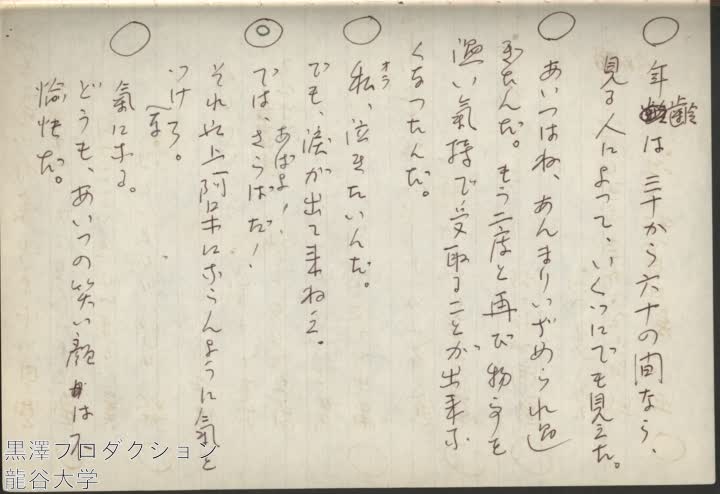 年齢は三十から六十の間なら、
見る人によって、いくつにでも見えた。
あいつはね、あんまりいぢめられ過
ぎたんだ。もう二度と再び物事を
温い氣持で受取ることが出来な
くなつたんだ。
私、泣きたいんだ。
オラ
でも、涙が出て来ねえ。
あばよ!
では、さらばだ!
それ以上阿呆にならんように氣を
つけろ。
氣になる。
どうも、あいつの笑い顔は不
愉快だ。
黒澤プロダクション
龍谷大学